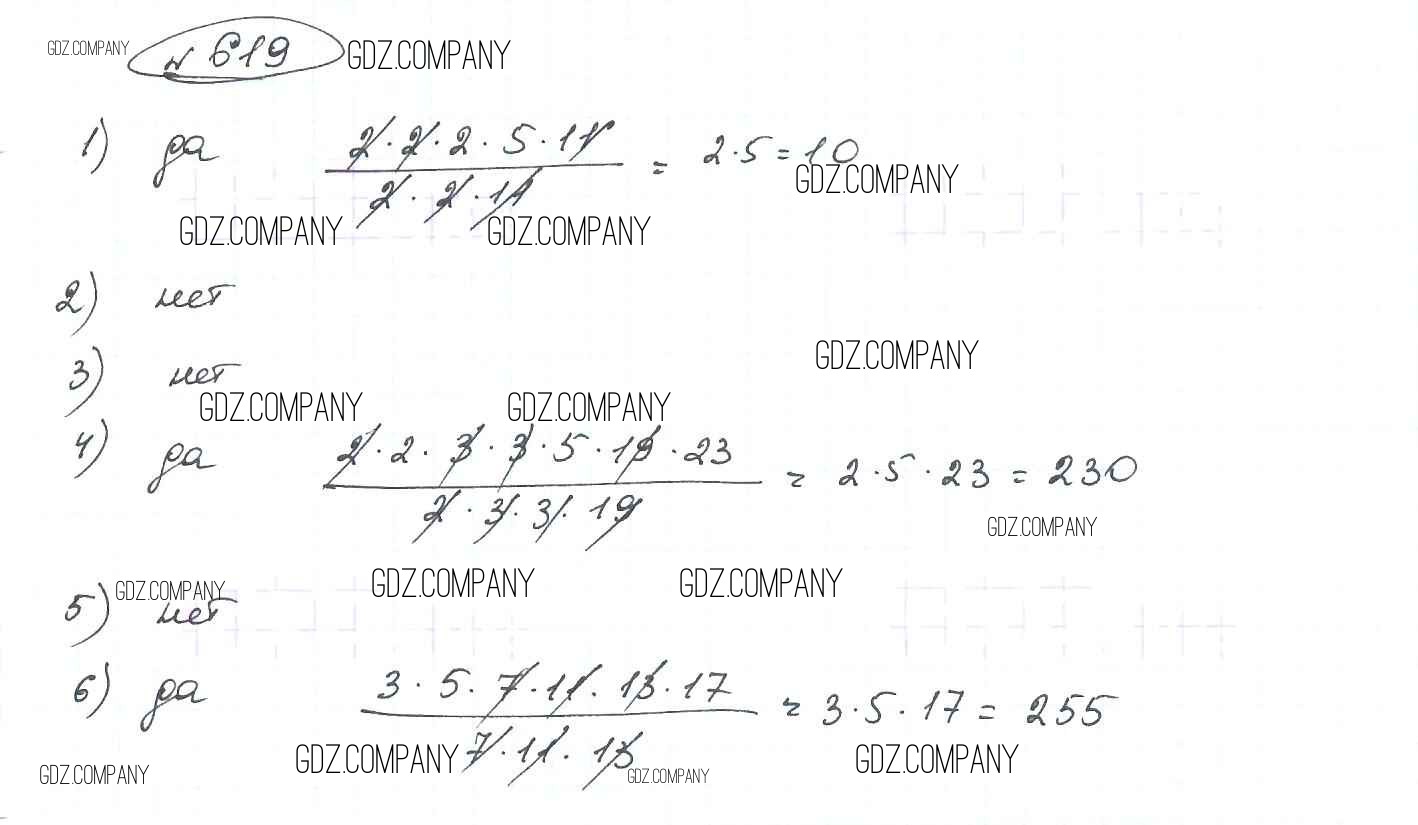 GDZ.COMPANY № 619 GDZ.COMPANY
1) да (2·2·2·5·11)/(2·2·11) = 2·5 = 10
GDZ.COMPANY
GDZ.COMPANY GDZ.COMPANY
2) нет
GDZ.COMPANY
3) нет
GDZ.COMPANY GDZ.COMPANY
4) да (2·2·3·3·5·19·23)/(2·3·3·19) = 2·5·23 = 230
GDZ.COMPANY
GDZ.COMPANY GDZ.COMPANY GDZ.COMPANY
5) нет
6) да (3·5·7·11·13·17)/(7·11·13) = 3·5·17 = 255
GDZ.COMPANY GDZ.COMPANY GDZ.COMPANY GDZ.COMPANY